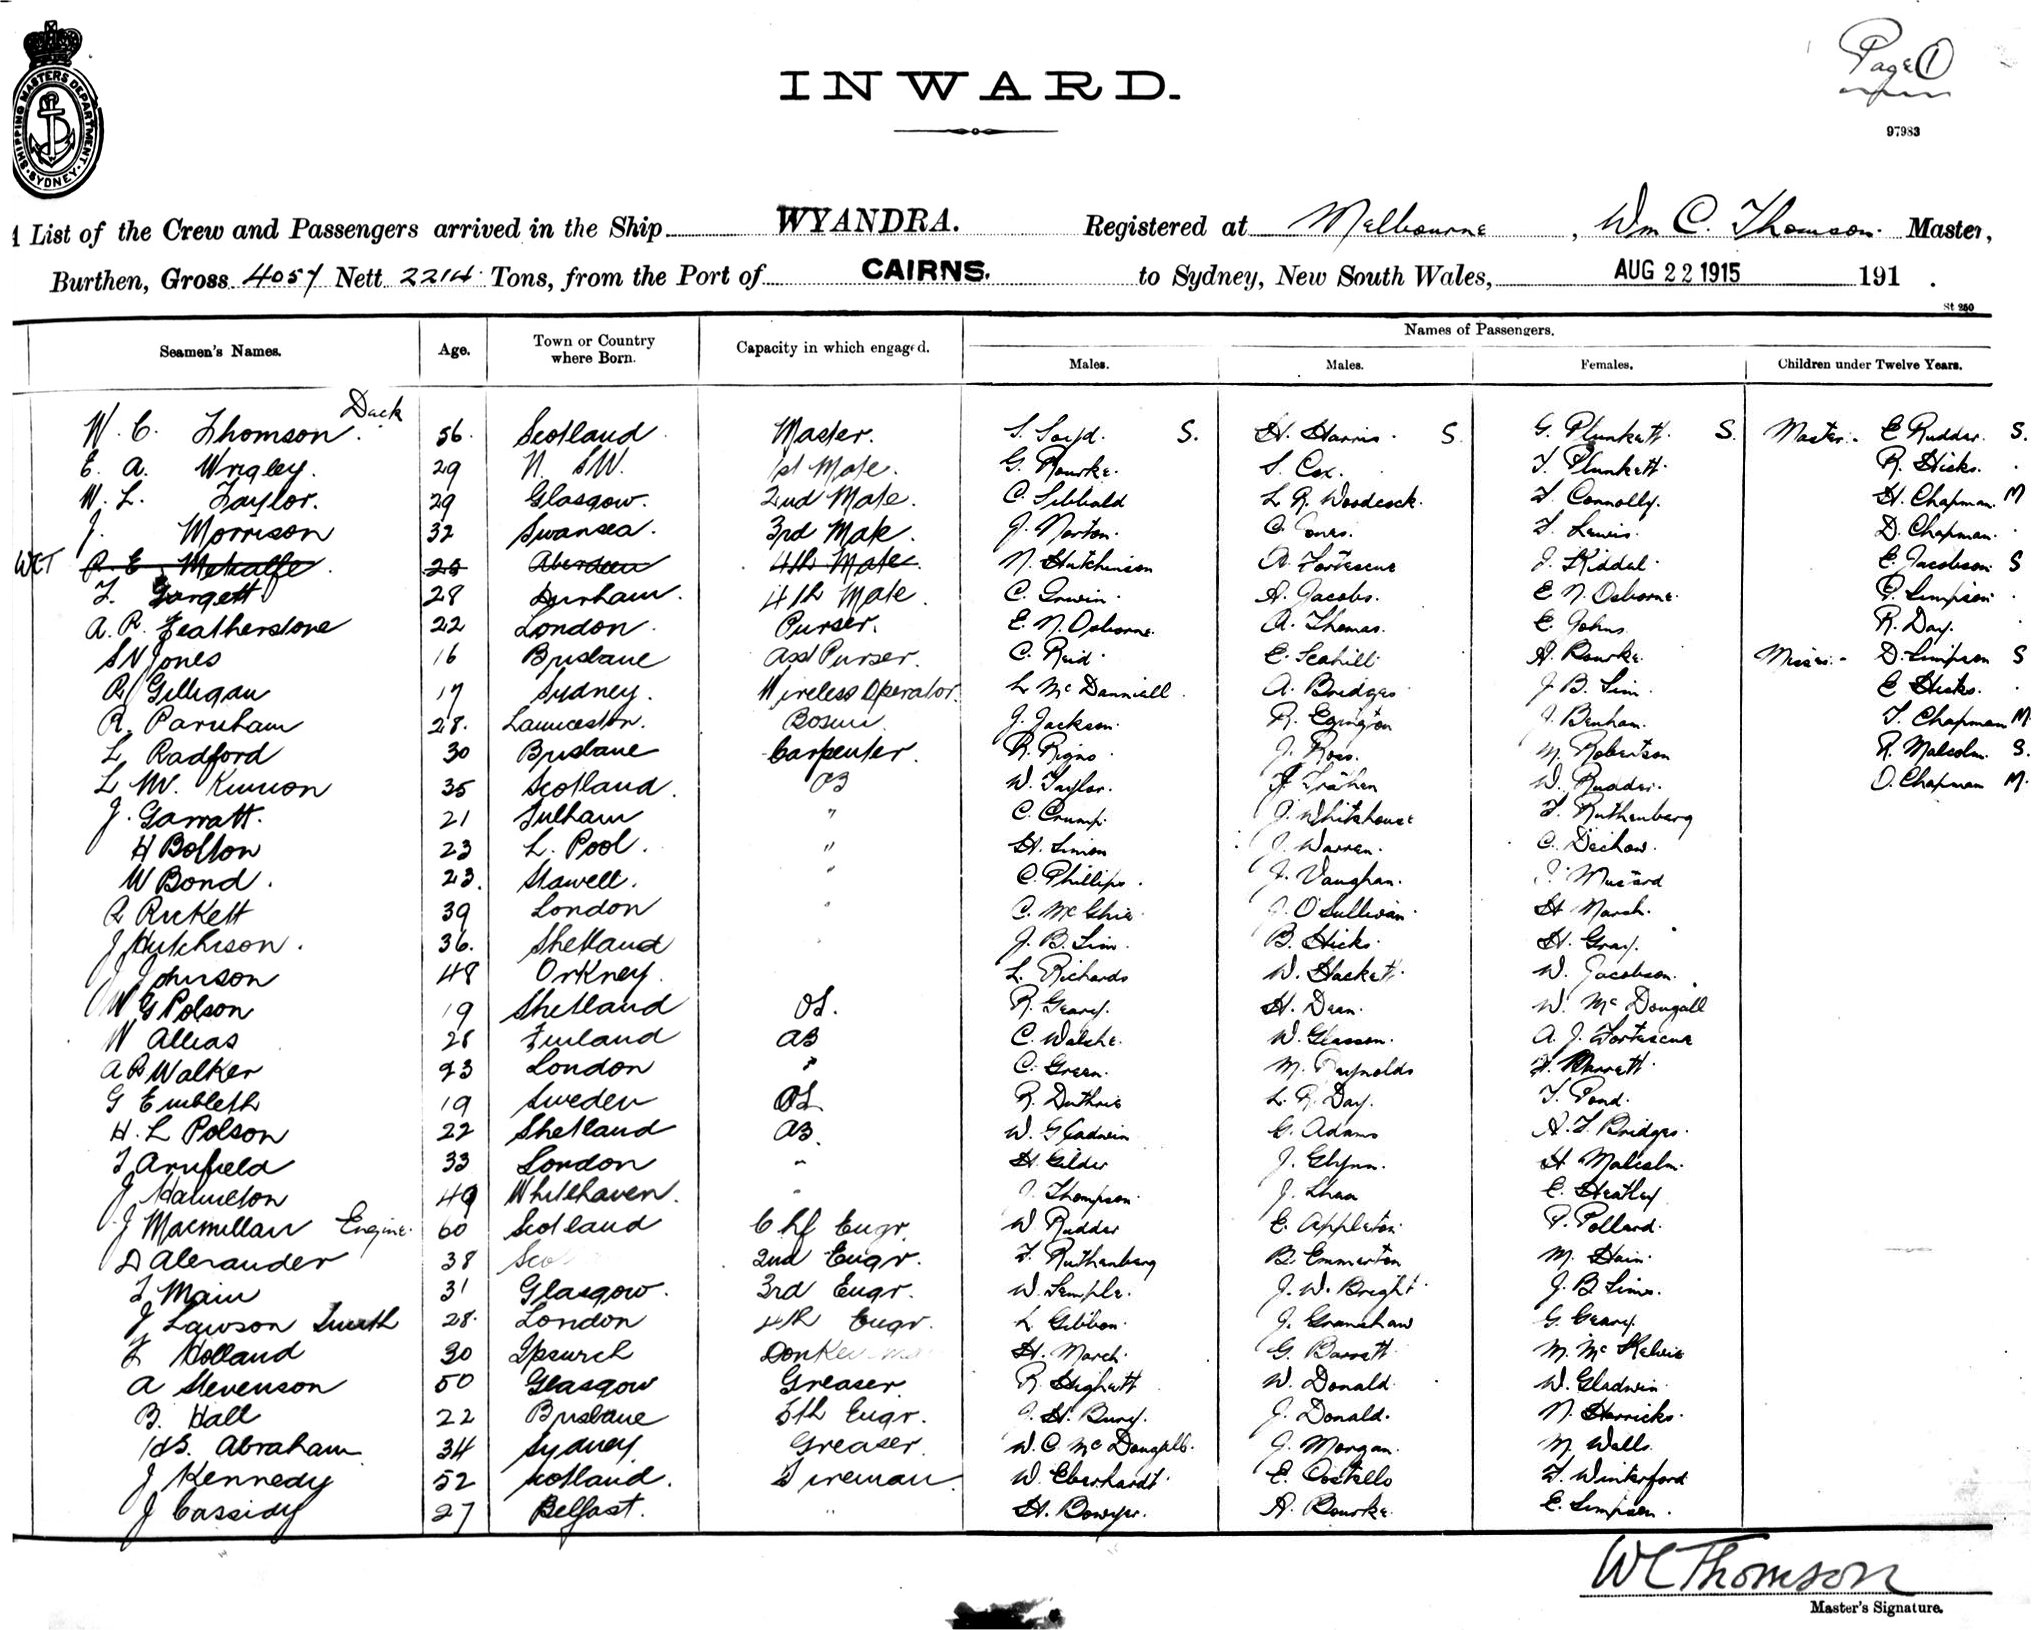 Page 1
SHIPPING MASTERS DEPARTMENT. SYDNEY.
INWARD.
97983
List of the Crew and Passengers arrived in the Ship WYANDRA. Registered at Melbourne, Wm C. Thomson. Master,
Burthen, Gross 4057 Nett 2214 Tons, from the Port of CAIRNS. to Sydney, New South Wales, AUG 22 1915 191 .
St 250
Names of Passengers.
Seamen's Names. Age. Town or Country where Born. Capacity in which engaged. Males. Males. Females. Children under Twelve Years.
Deck
W. C. Thomson. 56. Scotland Master. S. Loyd. S. H. Harris. S G. Plunkett. S. Master:- E Rudder. S.
E. A. Wrigley. 29 N. SW. 1st Mate. G. Rourke. S. Cox. T. Plunkett. R. Hicks.
W. L. Taylor. 29 Glasgow. 2nd Mate. C. Sibbald L. R. Woodcock. F. Connolly. H. Chapman. M
J. Morrison 32 Swansea. 3rd Mate. J. Norton. C. Jones. F. Lewis. D. Chapman.
WCT R. E. Metcalfe. 25 Aberdeen 4th Mate. N. Hutchinson A. Fortescue J. Kiddel. E. Jacobson. S
F. Gargett 28 Durham. 4th Mate. C. Gowin. A. Jacobs. E N. Osborne. P. Simpson.
A. R. Featherstone 22 London. Purser. E. N. Osborne. A. Thomas. E. Johns. R. Day.
S N Jones 16 Brisbane Asst Purser. C. Reid. E. Scahill A. Rourke. Misses:- D. Simpson S
R Gilligan 17 Sydney. Wireless Operator. L. McDanniell. A. Bridges J. B. Sim. E Hicks.
R. Parnham 28. Launceston. Bosun J. Jackson. R. Egington J. Benham. T. Chapman M.
L Radford 30 Brisbane Carpenter. R. Rigno J. Ross. M. Robertson R. Malcolm. S.
35 Scotland. AB W. Taylor. W. Rudder. O. Chapman M.
J. Garratt. 21 Fulham " C. Crump. J. Whitehouse F. Ruthenberg
H Bolton 23 L. Pool. " H. Simon J. Warren. C. Dechow.
W Bond. 23. Stawell. " C. Phillips. J. Vaughan. Mustard
A Rickett 39 London " C. McGhie. J. O'Sullivan. H Marsh.
J Hutchison. 36. Shetland J. B. Sim. B. Hicks. H. Gray.
J Johnson 48 Orkney. L. Richards W. Haskett. W. Jacobson.
W G Polson 19 Shetland OS. R. Geary. H. Dean. W. McDougall
W Allias 28 Finland AB C. Walshe. W. Glasson. A. J. Fortescue
A B Walker 23 London " C. Green. M. Reynolds F. Barrett.
G Embleth 19 Sweden OS R. Duthrie L. R. Day. T. Pond.
H. L Polson 22 Shetland AB. W. Gladwin G. Adams A. F. Bridges.
T Arnfield 33 London " H. Gilder J. Glynn. H Malcolm.
J Hamilton 49 Whitehaven. " J. Thompson. J. Shaa E. Heatley
J Macmillan Engine. 60 Scotland Chf Engr. W Rudder E. Appleton. P. Pollard.
D Alexander 38 Sco 2nd Engr. F. Ruthenberg B. Emmerton M. Hain.
T Main 31 Glasgow. 3rd Engr. W. Semple. J. W. Bright J. B Sims.
J Lawson Smith 28. London 4th Engr. L. Gibbon. J. Granshaw G. Geary.
F Holland 30 Ipswich Donkeyma H. March. G. Barrett M. McKelvie
A Stevenson 50 Glasgow Greaser. R. Highatt W. Donald. W. Gladwin.
B. Hall 22 Brisbane 5th Engr. J. H. Bury. J. Donald. N. Herricks.
Abraham 34 Sydney. Greaser. W. C. McDougall. J. Morgan. M. Walls.
J Kennedy 52 Scotland. Fireman W. Eberhardt. E. Costello F. Winterford
J Cassidy 27 Belfast. " H. Bowyer. A. Rourke. E. Simpson.
WC Thomson
Master's Signature.